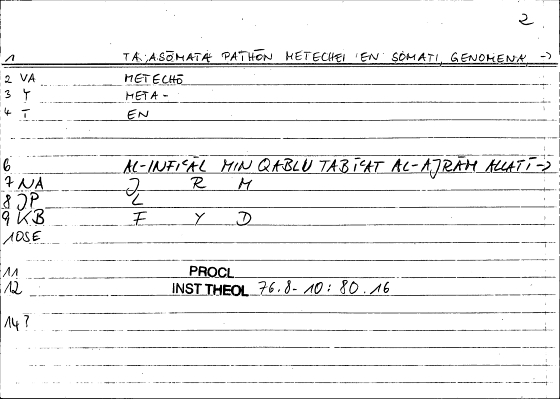 2
1 TA ASŌMATA PATHŌN METECHEI EN SŌMATI GENOMENA →
2 VA METECHŌ
3 Y META-
4 T EN
6 AL-INFIʿĀL MIN QABLU TABĪʿAT AL-AJRĀM ALLATĪ →
7 NA J R M
8 JP L
9 KB F Y D
10SE
11 PROCL
12 INST THEOL 76.8-10: 80.16
14?